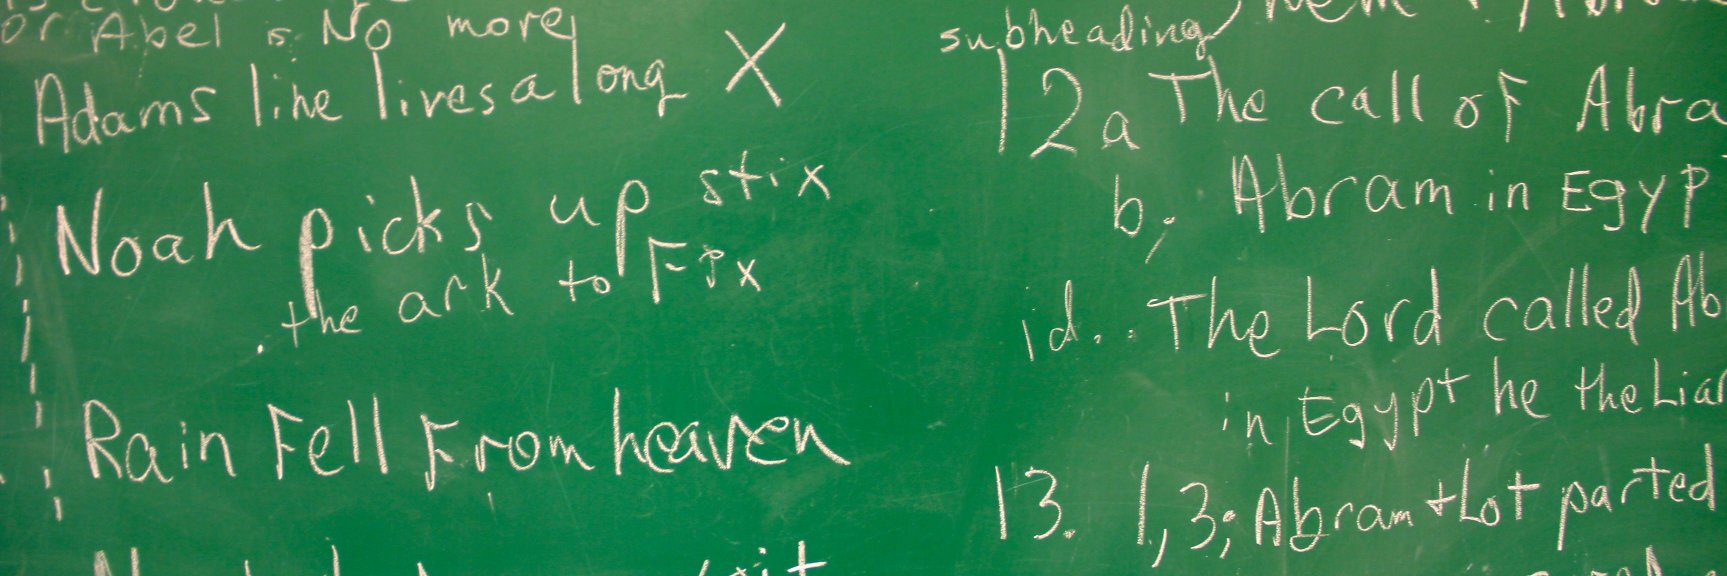 or Abel is No more
Adams line lives a long X
Noah picks up stix
the ark to Fix
Rain Fell From heaven
subheading
12a The call of Abra
b; Abram in Egyp
id. The Lord called Ab
in Egypt he the Liar
13. 1,3; Abram + Lot parted